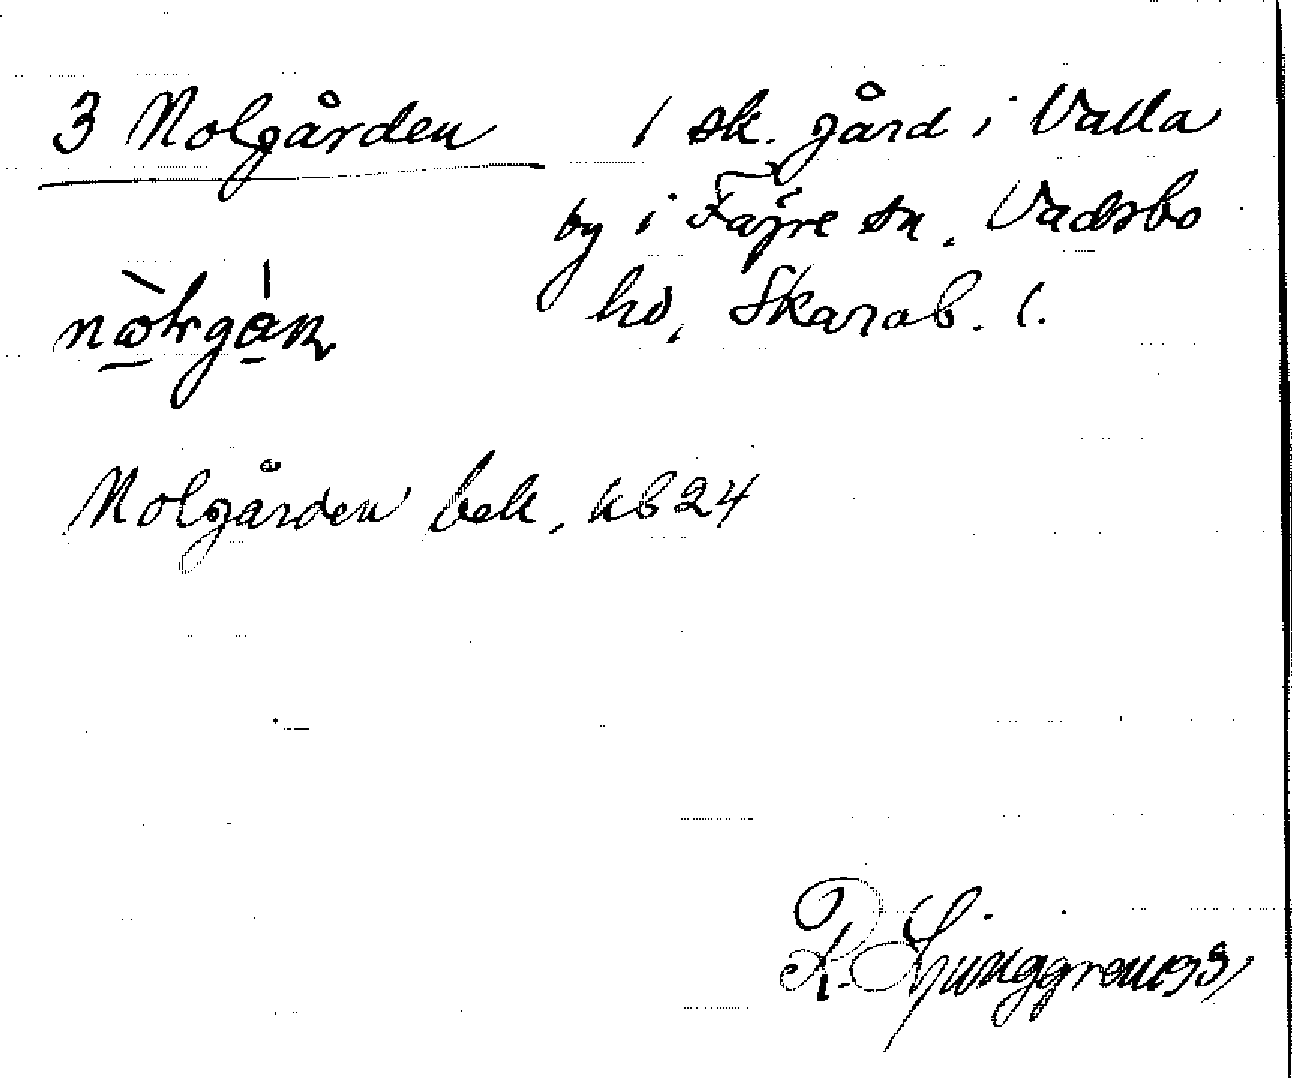 3 Nolgården
1 sk. gård i Valla
by i Fägre sn. Vadsbo
hd, Skarab. l.
Nolgården bek. kb 24
R. Ljunggren 1933